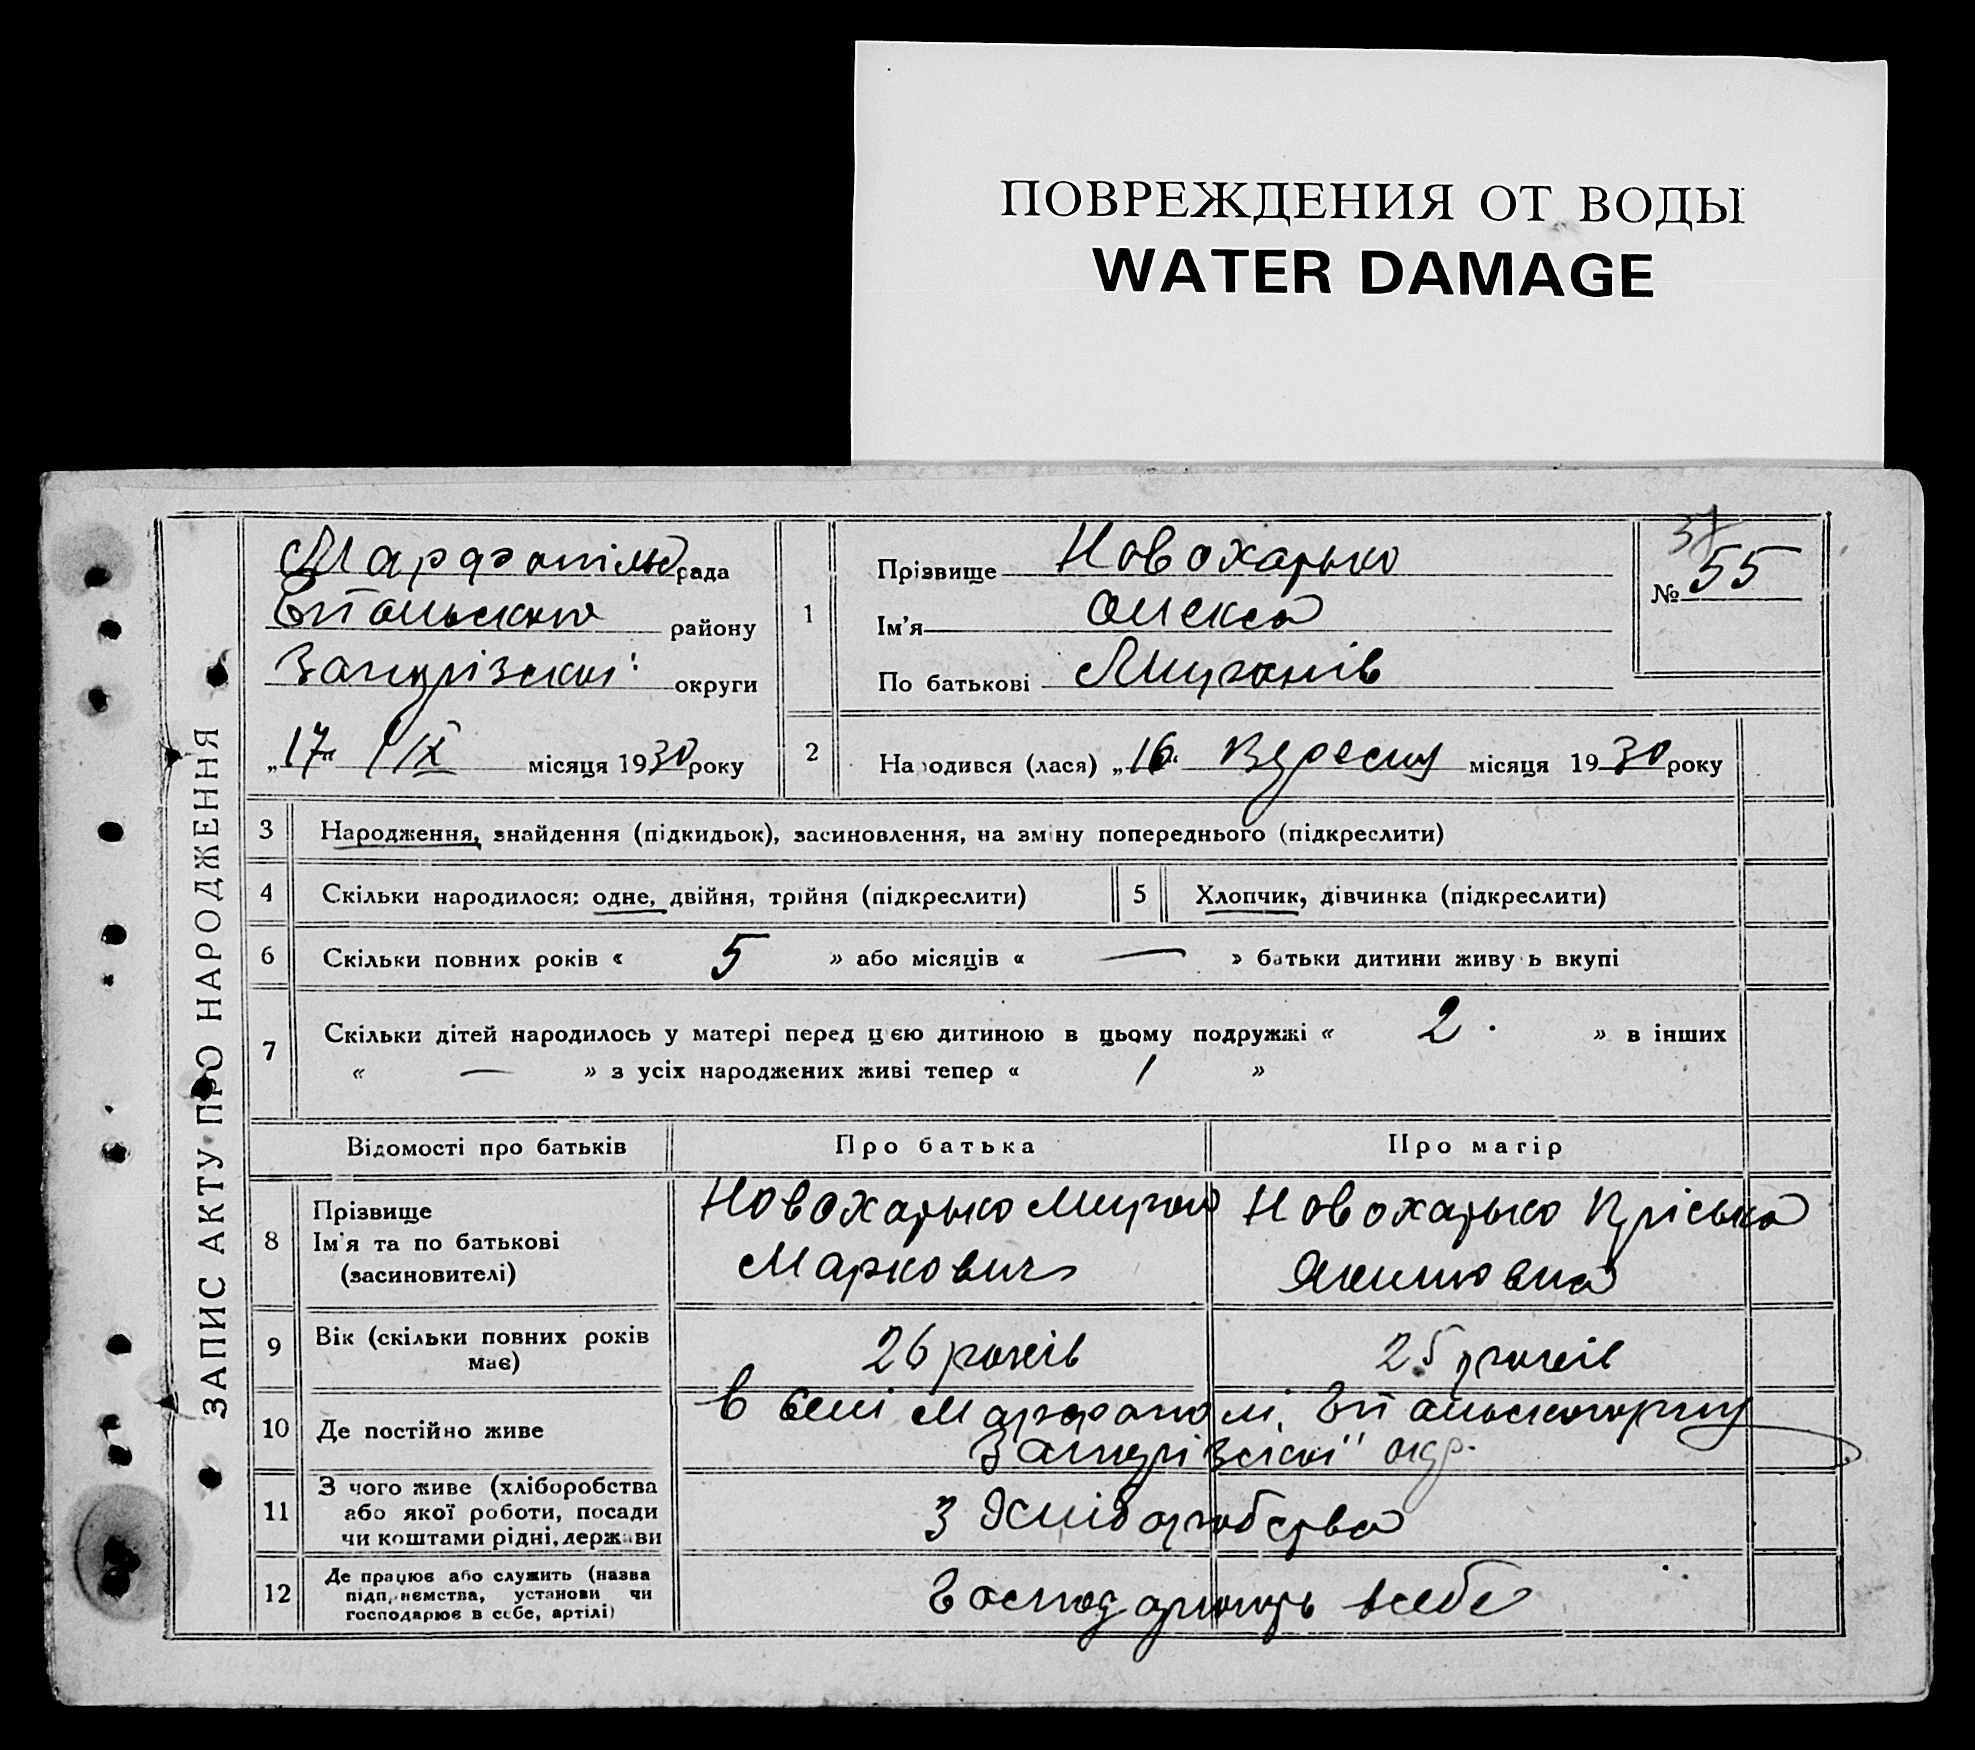 ПОВРЕЖДЕНИЯ ОТ ВОДЫ
WATER DAMAGE
ЗАПИС АКТУ ПРО НАРОДЖЕННЯ
Марфопільс рада
району
Запорізської округи
„17“ IX місяця 1930 року
1
Прізвище Новохатько
Ім'я Олекса
По батькові
37
№ 55
2
Народився (лася) „16“ Вересня місяця 1930 року
3 Народження, знайдення (підкидьок), засиновлення, на зміну попереднього (підкреслити)
4 Скільки народилося: одне, двійня, трійня (підкреслити)
5 Хлопчик, дівчинка (підкреслити)
6 Скільки повних років « 5 » або місяців « — » батьки дитини живуть вкупі
7 Скільки дітей народилось у матері перед цією дитиною в цьому подружжі « 2 » в інших
« — » з усіх народжених живі тепер « 1 »
Відомості про батьків Про батька Про матір
8 Прізвище
Ім'я та по батькові
(засиновителі)
Новохатько
Маркович
Новохатько Пріська
Якимовна
9 Вік (скільки повних років
має)
26 років
25 років
10 Де постійно живе
в селі Марфополі,
Запорізської окр.
11 З чого живе (хліборобства
або якої роботи, посади
чи коштами рідні, держави
З Хліборобства
12 Де працює або служить (назва
підприємства, установи чи
господарює в себе, артілі)
Господарюють всебе